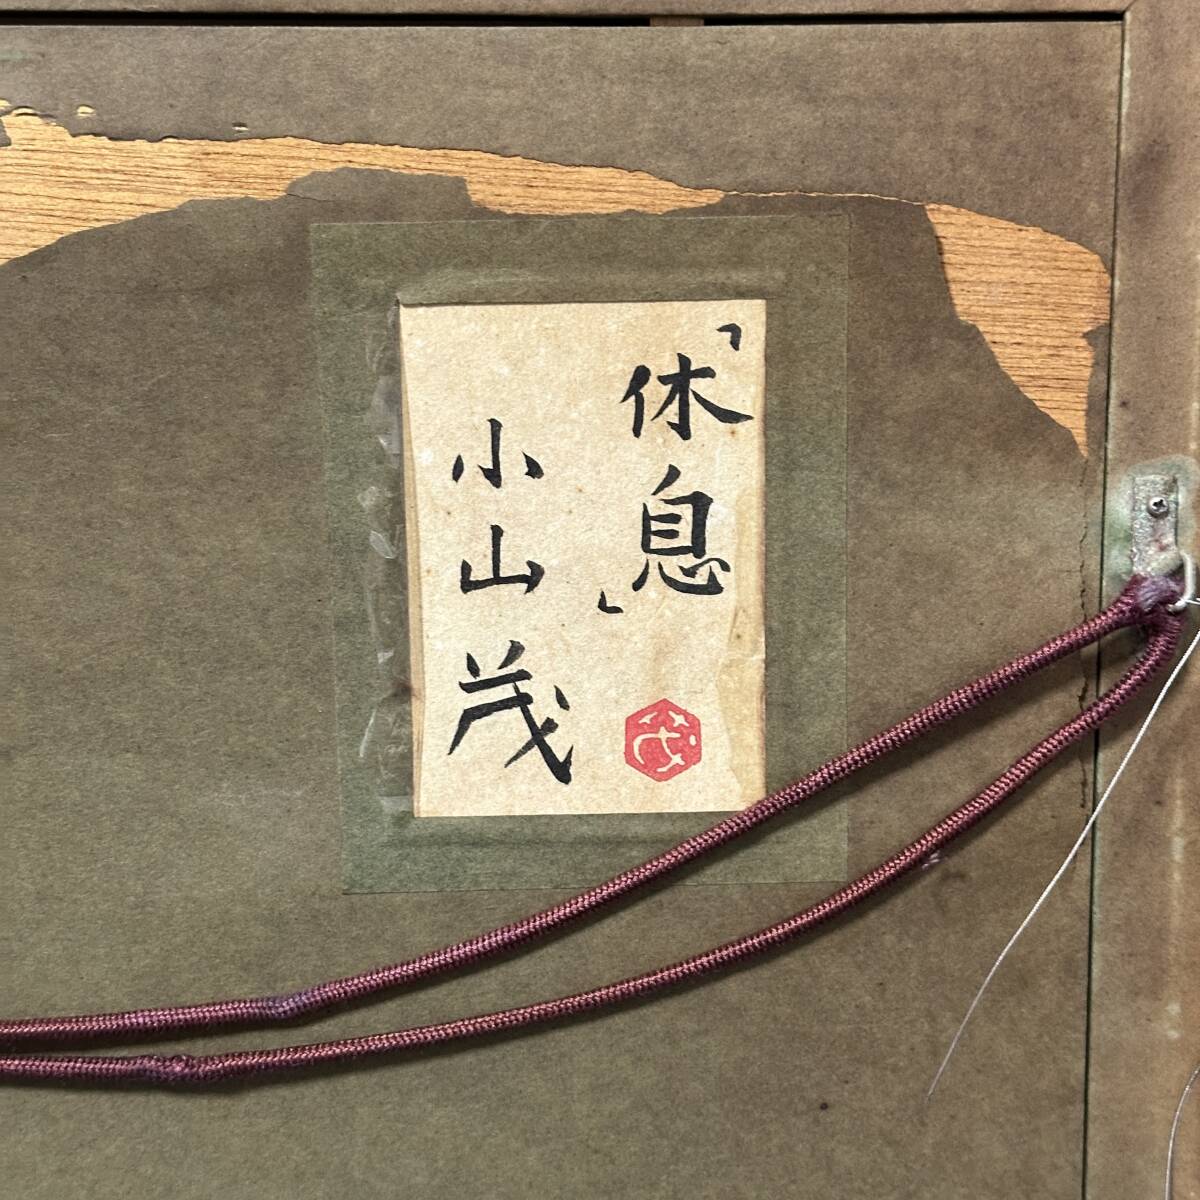 「休息」
小山茂